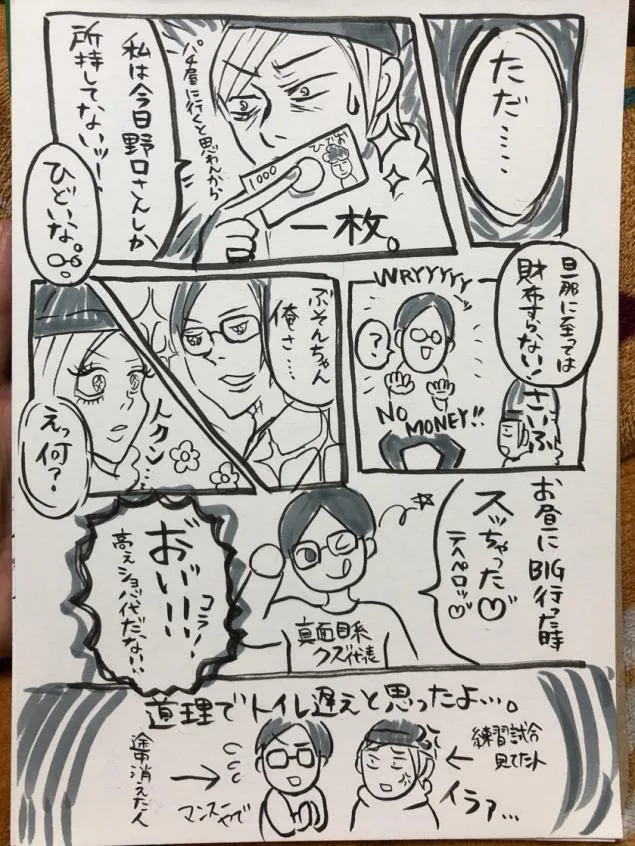 ただ……
私は今日野口さんしか
所持してないッ…
パチ屋に行くと思わんから
1000
ひでお
一枚。
ひどいな。
旦那に至っては
財布すらない!
さいふ
WRYYYYY
?
NO
MONEY!!
ぶそんちゃん
俺さ…
トクン…
えっ何?
お昼にBIG行った時
スッちゃった♡
テヘペロッ♡
真面目系
クズ代表
おいいい
コラァ!
高えショバ代だない…
道理でトイレ遅えと思ったよ…。
途中消えた人
→
マンスーやで
練習試合
見てた人
←
イラァ…